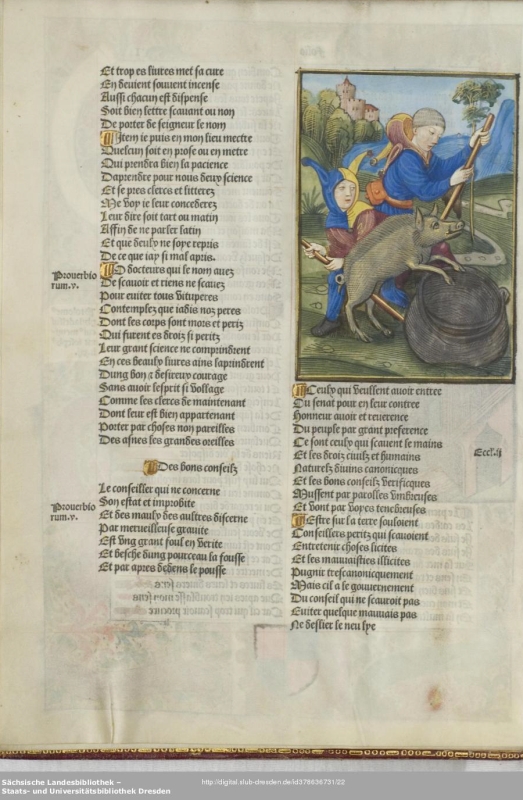 Et trop es liures met sa cure
En deuient souuent incense
Aussi chacun est dispense
Soit bien lettre scauant ou non
De porter de seigneur le nom
Item ie puis en mon lieu mectre
Quelcun soit en prose ou en metre
Qui prendra bien la pacience
Daprendre pour nous deux science
Et se pres clercs et litterez
Me voy ie leur concederez
Leur dire soit tart ou matin
Affin de ne parler latin
Et que deulx ne soye repris
De ce que iay si mal apris.
O docteurs qui le nom auez
Prouerbio
rum.v.
De scauoir et riens ne scauez
Pour euiter tous vituperes
Contemplez que iadis noz peres
Dont les corps sont mors et periz
Qui furent es droiz si peritz
Leur grant science ne comprindrent
En ces beaulx liures ains laprindrent
Dung bon z desireux courage
Sans auoir lesprit si vollage
Comme les clercs de maintenant
Dont leur est bien appartenant
Porter par choses non pareilles
Des asnes les grandes oreilles
Des bons conseilz
Le conseiller qui ne concerne
Prouerbio
rum.v.
Son estat et improbite
Et des maulx des aultres discerne
Par merueilleuse grauite
Est vng grant foul en verite
Et besche dung pourceau la fousse
Et par apres dedens le pousse
Ceulx qui veullent auoir entree
Du senat pour en leur contree
Honneur auoir et reuerence
Du peuple par grant preference
Ce sont ceulx qui scauent le mains
Eccl.ij
Et les droiz ciuilz et humains
Naturelz diuins canonicques
Et les bons conseilz verificques
Mussent par parolles vmbreuses
Et vont par voyes tenebreuses
Estre sur la terre souloient
Conseillers peritz qui scauoient
Entretenir choses licites
Et les mauuaisties illicites
Pugnir trescanonicquement
Mais cil a le gouuernement
Du conseil qui ne scauroit pas
Euiter quelque mauuais pas
Ne deslier le neu lye
Sächsische Landesbibliothek –
Staats- und Universitätsbibliothek Dresden
http://digital.slub-dresden.de/id378636731/22